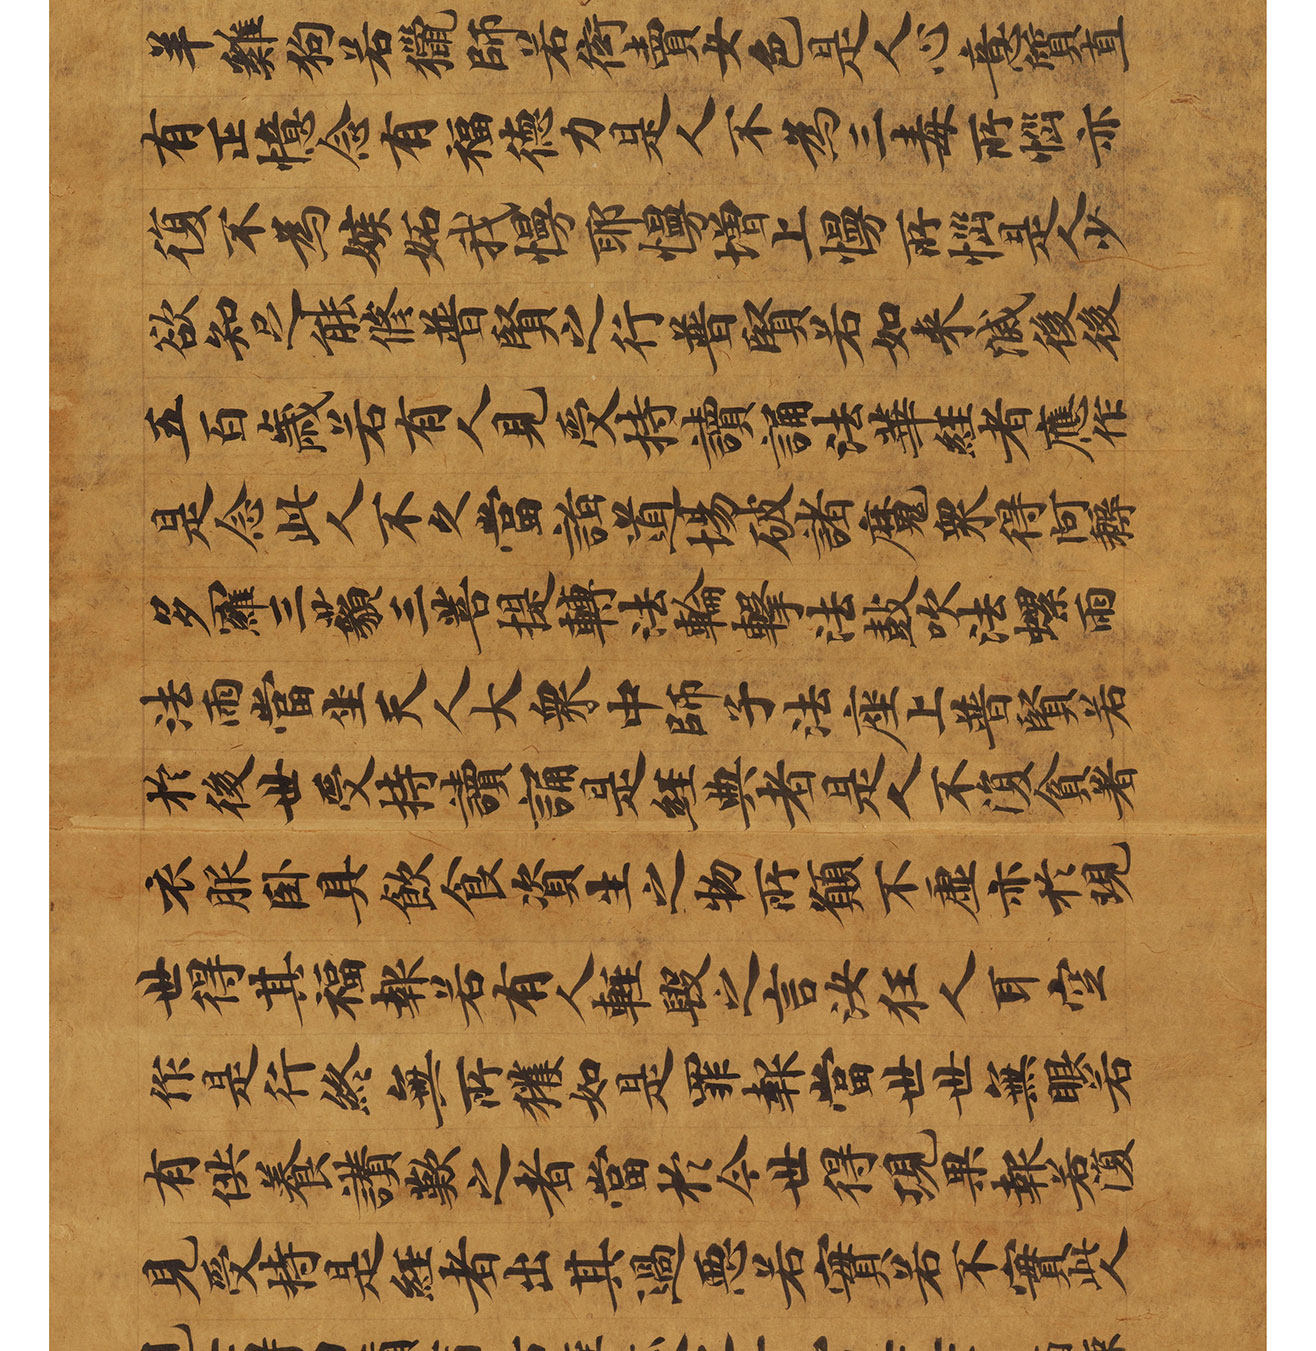 羊雞狗若獵師若衒賣女色是人心意質直
有正憶念有福德力是人不為三毒所惱亦
復不為嫉妬我慢耶慢增上慢所惱是人少
欲知足能修普賢之行普賢若如來滅後後
五百歲若有人見受持讀誦法華經者應作
是念此人不久當詣道場破諸魔眾得阿耨
多羅三藐三菩提轉法輪擊法鼓吹法螺雨
法雨當坐天人大眾中師子法座上普賢若
於後世受持讀誦是經典者是人不復貪著
衣服臥具飲食資生之物所願不虛亦於現
世得其福報若有人輕毀之言汝狂人耳空
作是行終無所獲如是罪報當世世無眼若
有供養讚歎之者當於今世得現果報若復
見受持是經者出其過惡若實若不實此人